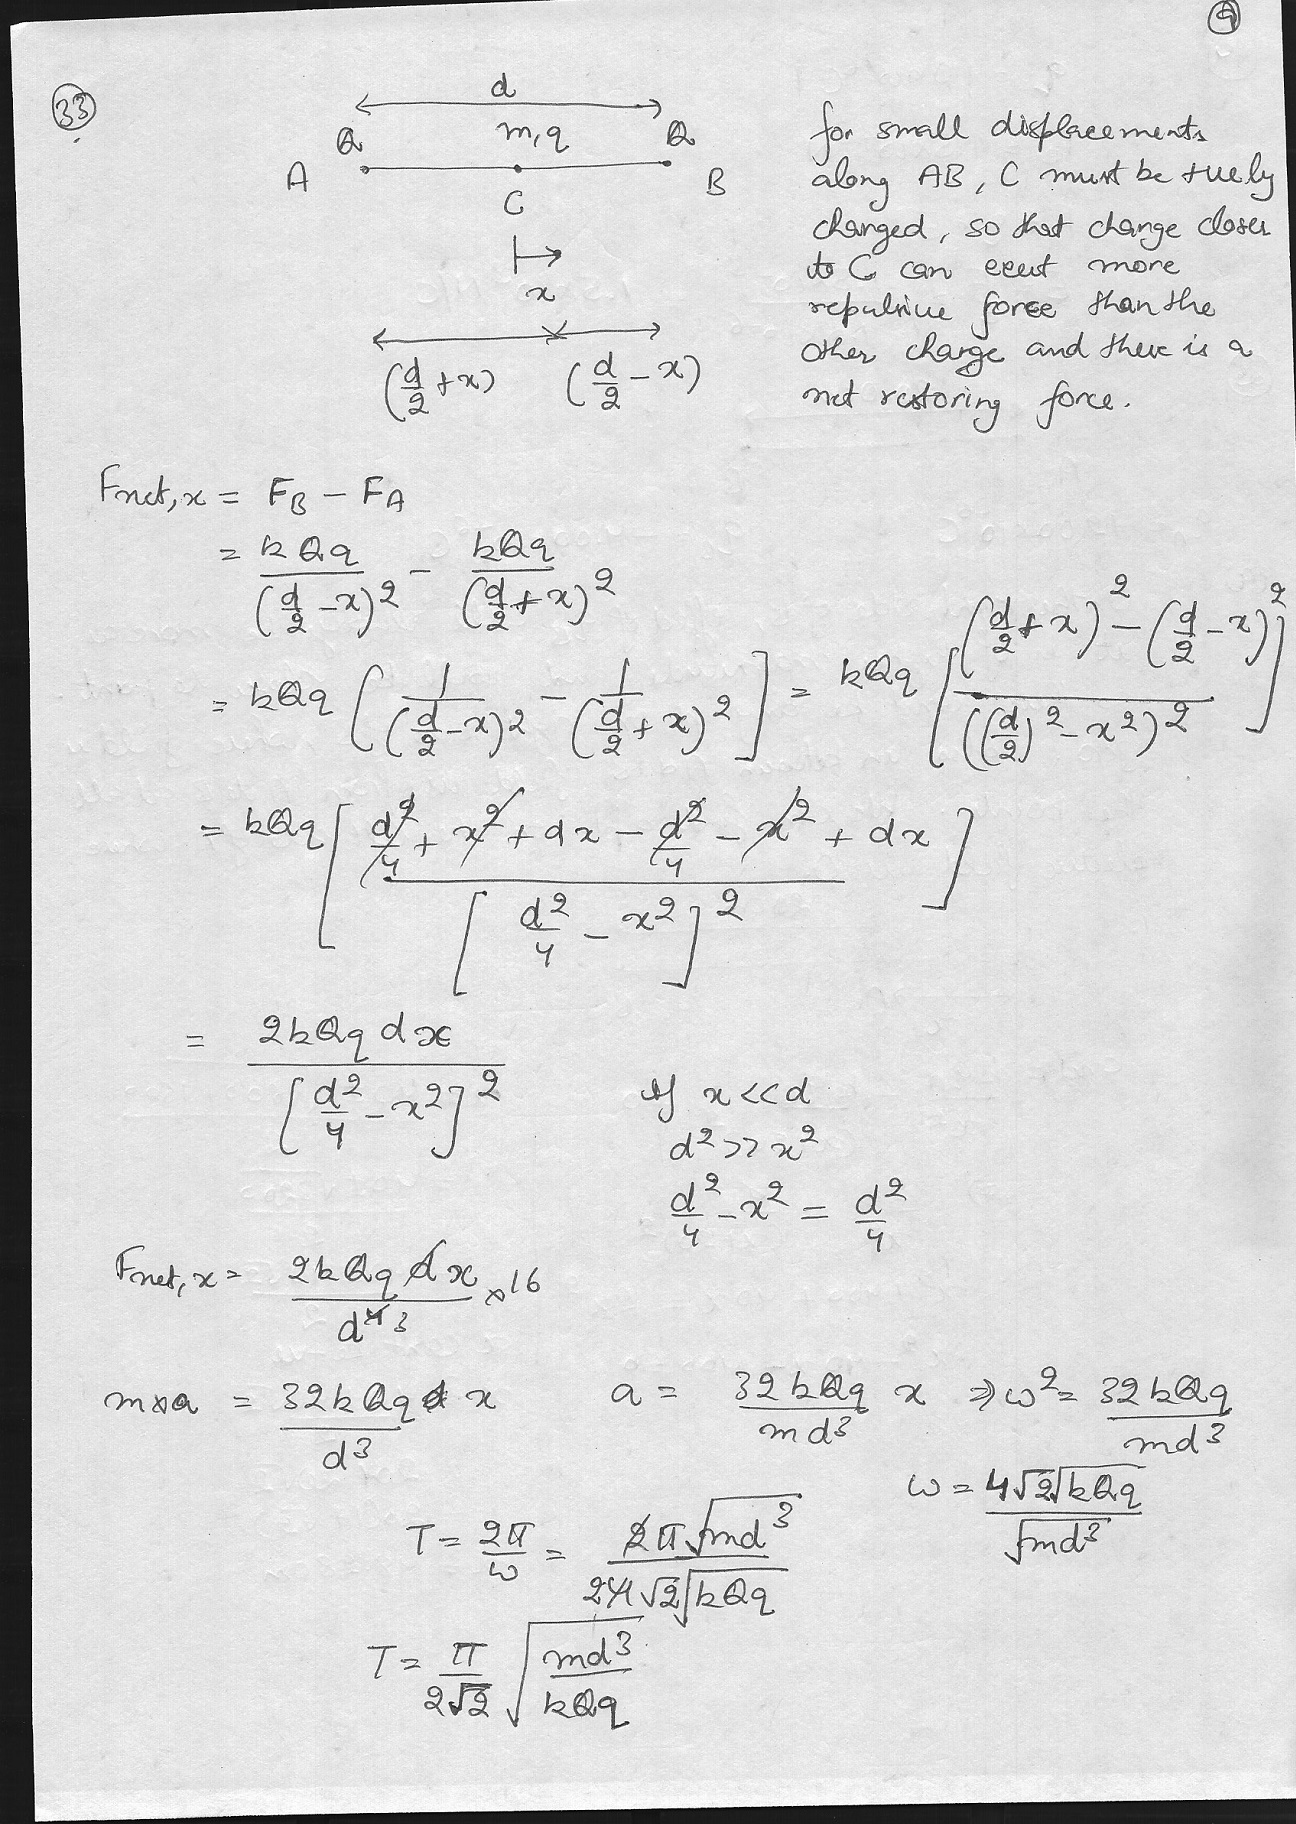 9
33
d
Q m,q Q
A B
C
x
(d/2 + x) (d/2 - x)
for small displacements
along AB, C must be +vely
charged, so that change closer
to C can exert more
repulsive force than the
other charge and there is a
net restoring force.
Fnet,x = FB - FA
= kQq/(d/2 - x)² - kQq/(d/2 + x)²
= kQq [1/(d/2 - x)² - 1/(d/2 + x)²] = kQq [((d/2 + x)² - (d/2 - x)²)/((d/2)² - x²)²]
= kQq [(d²/4 + x² + dx - d²/4 - x² + dx)/[d²/4 - x²]²]
= 2kQq dx/[d²/4 - x²]²
If x << d
d² >> x²
d²/4 - x² = d²/4
Fnet,x = 2kQq dx/d⁴ 3 × 16
m×a = 32kQq x/d³ a = 32kQq/md³ x ⇒ ω² = 32kQq/md³
ω = 4√2√kQq/√md³
T = 2π/ω = 2π√md³/2 4√2√kQq
T = π/2√2 √(md³/kQq)